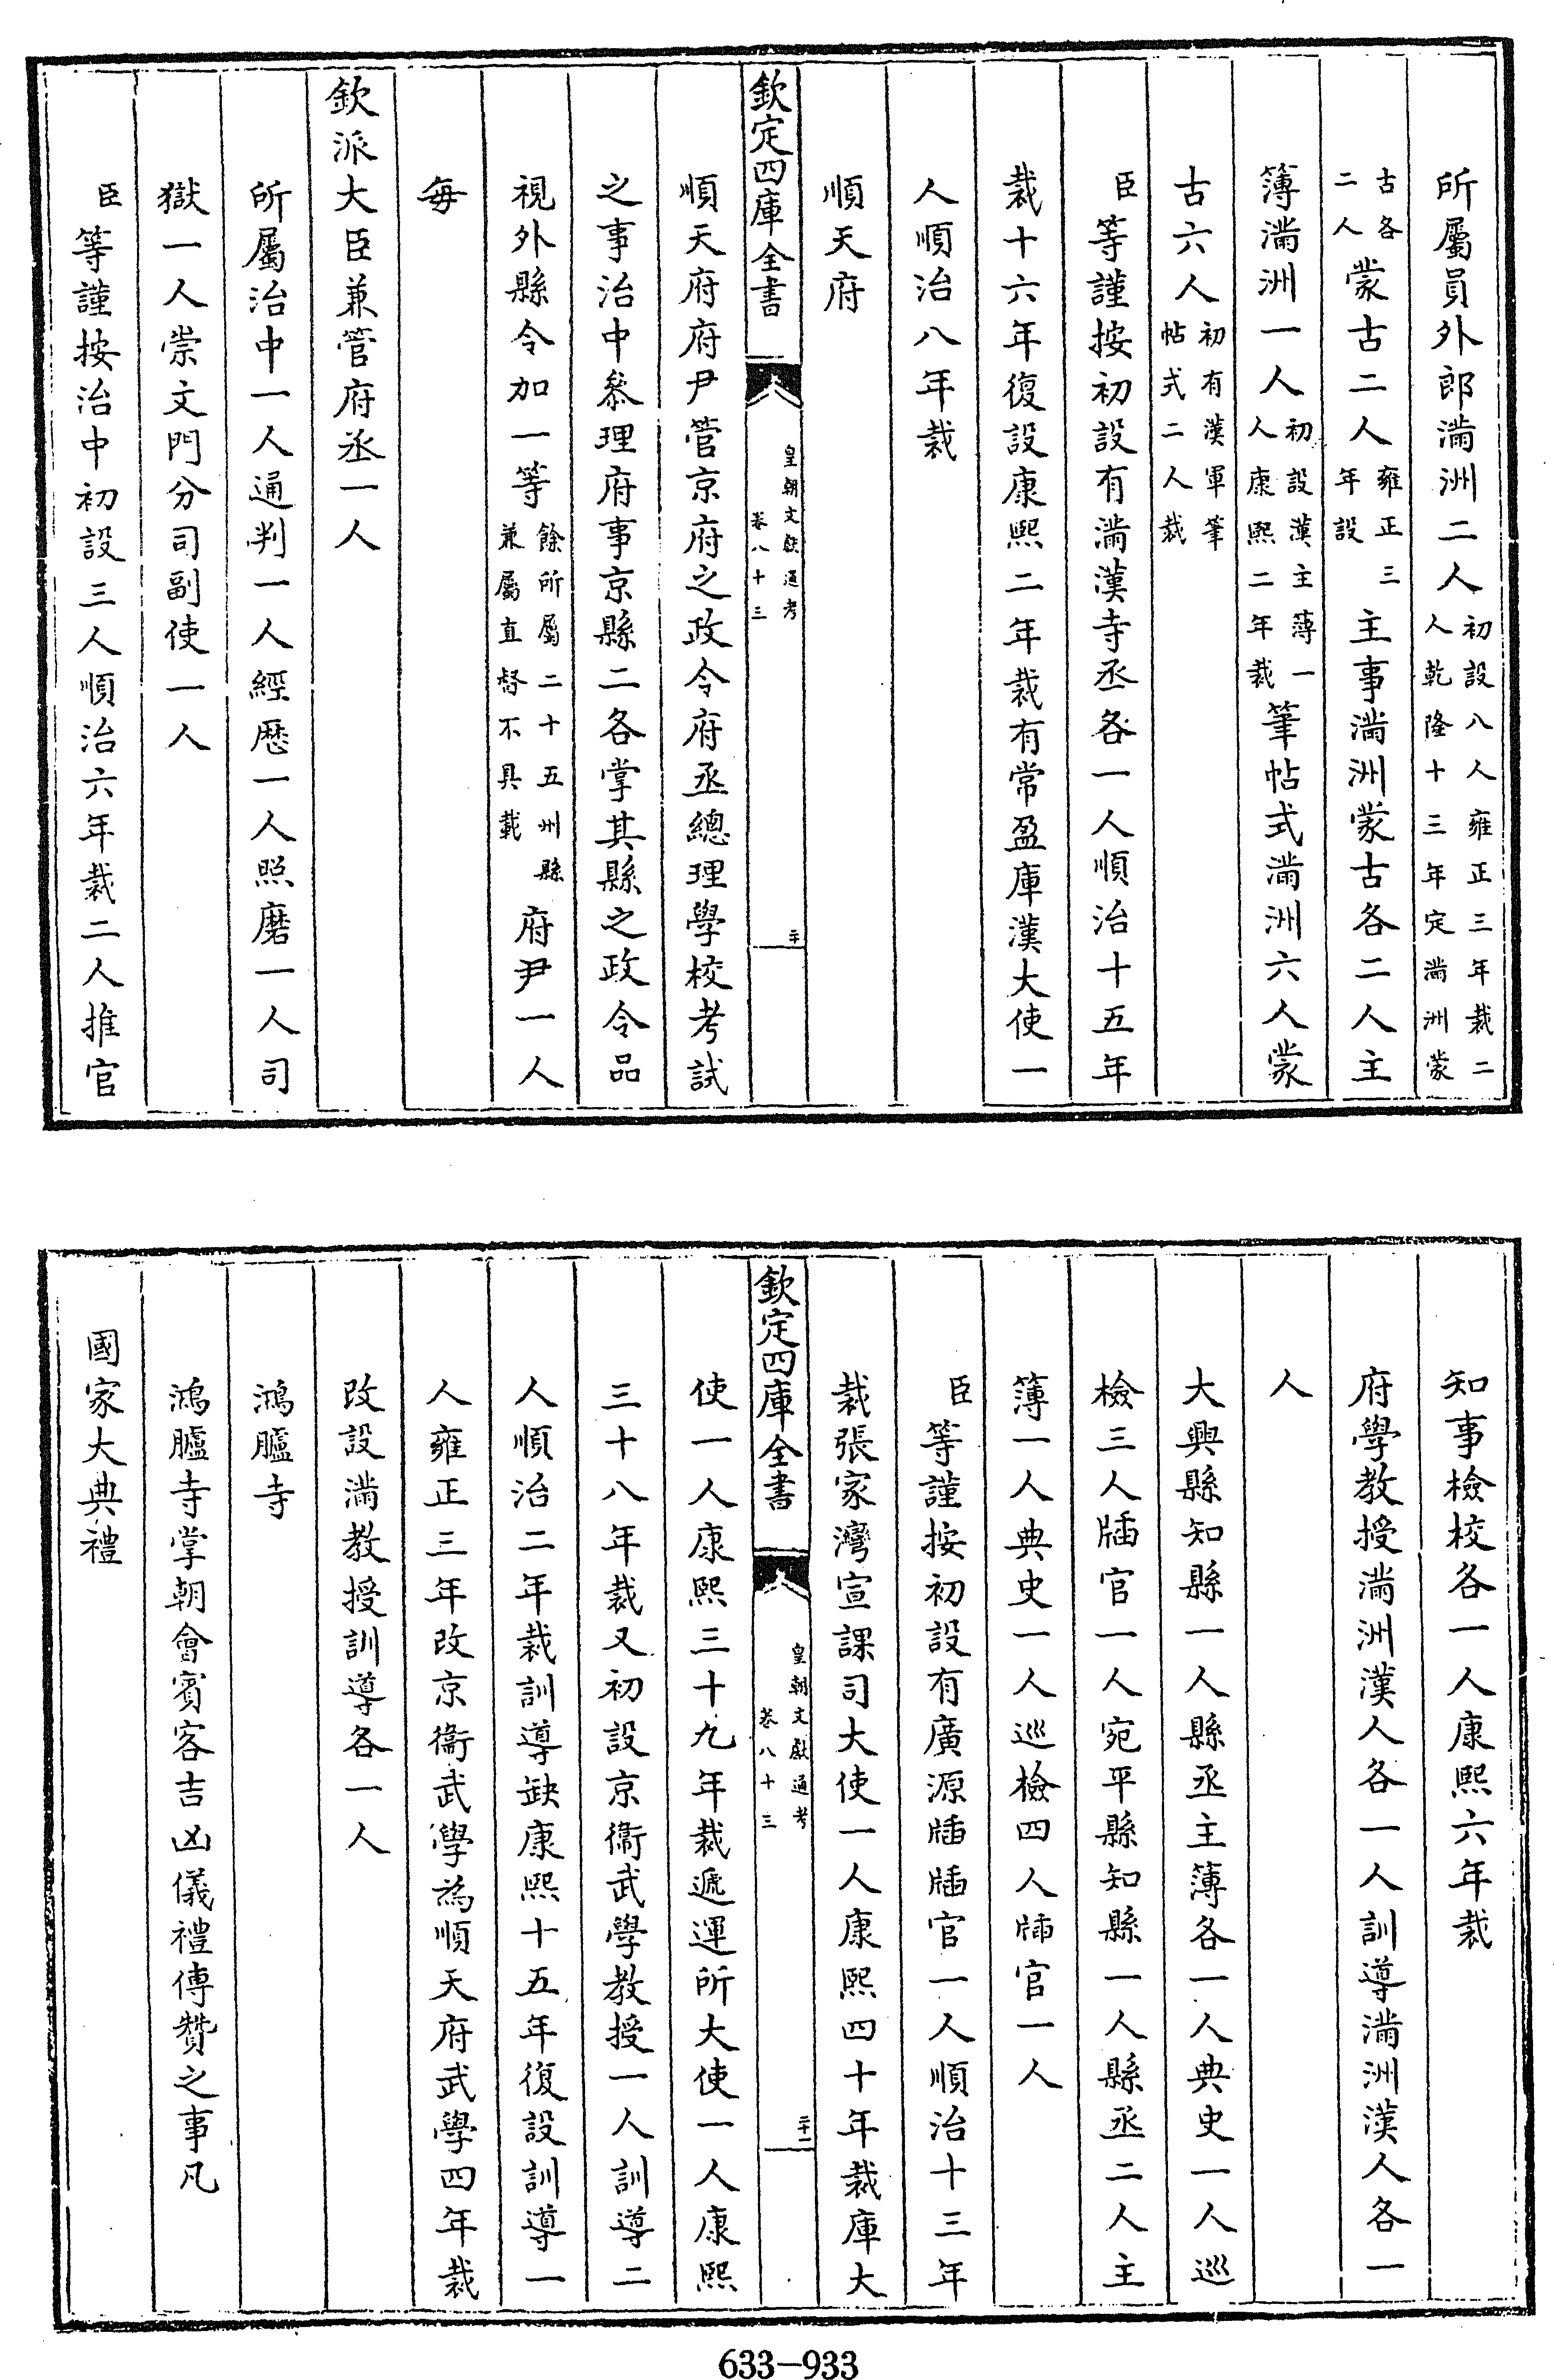 所屬員外郎滿洲二人初設八人雍正三年裁二人乾隆十三年定滿洲蒙
古各二人蒙古二人雍正三年設主事滿洲蒙古各二人主
簿滿洲一人初設漢主薄一人康熙二年裁筆帖式滿洲六人蒙
古六人初有漢軍筆帖式二人裁
臣等謹按初設有滿漢寺丞各一人順治十五年
裁十六年復設康熙二年裁有常盈庫漢大使一
人順治八年裁
順天府
欽定四庫全書
皇朝文獻通考
卷八十三
二十
順天府府尹管京府之政令府丞總理學校考試
之事治中叅理府事京縣二各掌其縣之政令品
視外縣令加一等餘所屬二十五州縣兼屬直督不具載府尹一人
每
欽派大臣兼管府丞一人
所屬治中一人通判一人經歷一人照磨一人司
獄一人崇文門分司副使一人
臣等謹按治中初設三人順治六年裁二人推官
知事檢校各一人康熙六年裁
府學教授滿洲漢人各一人訓導滿洲漢人各一
人
大興縣知縣一人縣丞主簿各一人典史一人巡
檢三人牐官一人宛平縣知縣一人縣丞二人主
簿一人典史一人巡檢四人牐官一人
臣等謹按初設有廣源牐牐官一人順治十三年
裁張家灣宣課司大使一人康熙四十年裁庫大
欽定四庫全書
皇朝文獻通考
卷八十三
二十一
使一人康熙三十九年裁遞運所大使一人康熙
三十八年裁又初設京衞武學教授一人訓導二
人順治二年裁訓導缺康熙十五年復設訓導一
人雍正三年改京衞武學為順天府武學四年裁
改設滿教授訓導各一人
鴻臚寺
鴻臚寺掌朝會賓客吉凶儀禮傳贊之事凡
國家大典禮
633-933